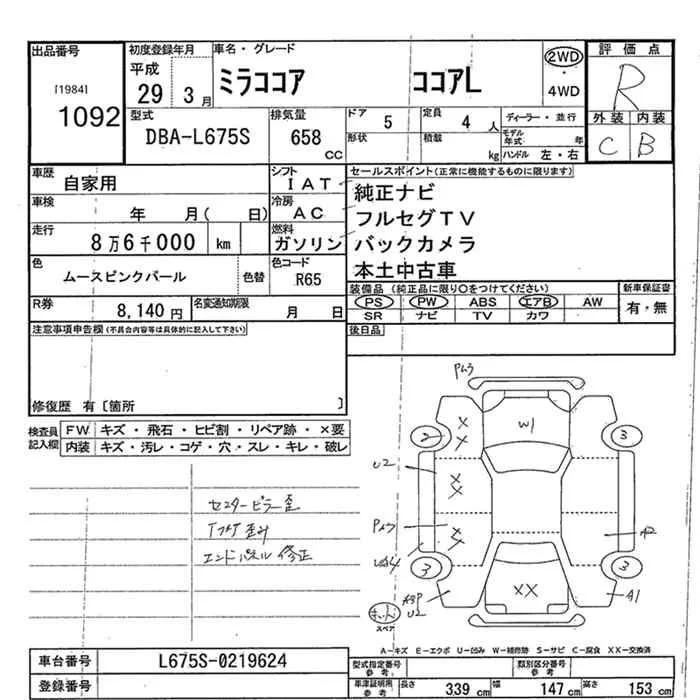 出品番号 初度登録年月 車名・グレード 2WD 評価点
[1984] 平成 ミラココア ココアL ・ R
1092 29 3月 4WD
型式 排気量 ドア 5 定員 4人 ディーラー・並行 外装 内装
DBA-L675S 658 cc 形状 積載 kg モデル年式 年 C B
ハンドル 左・右
車歴 自家用 シフト IAT セールスポイント(正常に機能するものに限ります)
車検 年 月( 日) 冷房 AC 純正ナビ
走行 8万6千000 km 燃料 ガソリン フルセグTV
バックカメラ
色 ムースピンクパール 色替 色コード R65 本土中古車
R券 8,140円 名変通知期限 月 日 装備品 (純正品に限り○をつけてください) 新車保証書
PS PW ABS エアB AW 有・無
SR ナビ TV カワ
注意事項申告欄(不具合内容等は具体的に記入して下さい) 後日品
修復歴 有〔箇所 〕
検査員記入欄 FW キズ・飛石・ヒビ割・リペア跡・×要
内装 キズ・汚レ・コゲ・穴・スレ・キレ・破レ
センターピラー歪
エンドパネル修正
X
X W1
2 3
U2
X
X
X
X
3 3
XX
U2 A1
スペア
A-キズ E-エクボ U-凹み W-補修跡 S-サビ C-腐食 XX-交換済
車台番号 L675S-0219624 型式指定番号 参考 類別区分番号 参考
登録番号 車津証明用 参考 長さ 339cm 幅 147cm 高さ 153cm